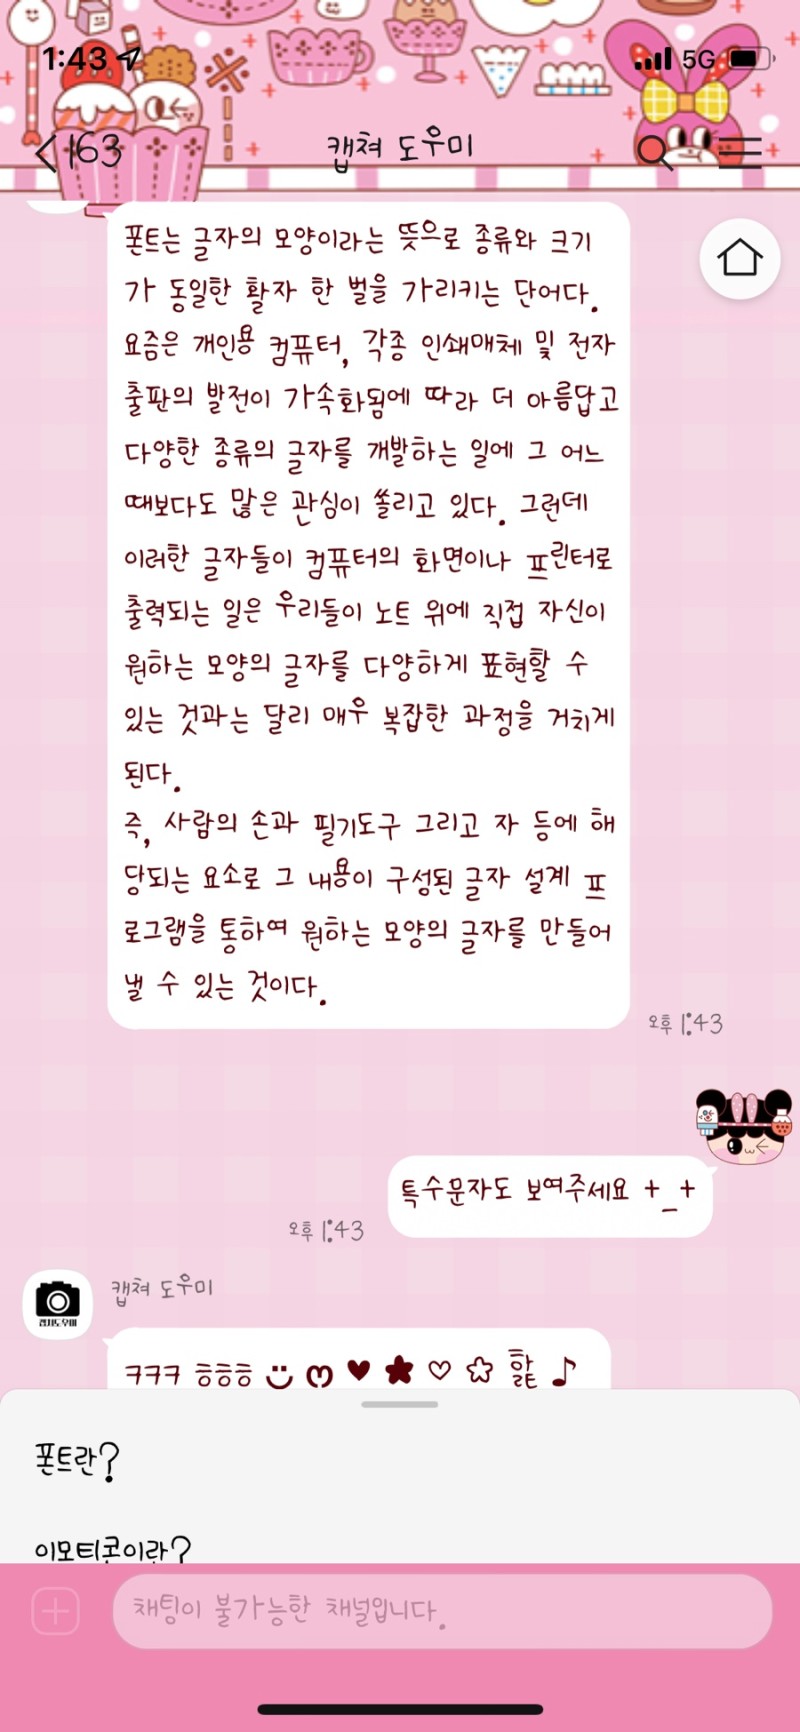 1:43
5G
163
캡쳐 도우미
폰트는 글자의 모양이라는 뜻으로 종류와 크기
가 동일한 활자 한 벌을 가리키는 단어다.
요즘은 개인용 컴퓨터, 각종 인쇄매체 및 전자
출판의 발전이 가속화됨에 따라 더 아름답고
다양한 종류의 글자를 개발하는 일에 그 어느
때보다도 많은 관심이 쏠리고 있다. 그런데
이러한 글자들이 컴퓨터의 화면이나 프린터로
출력되는 일은 우리들이 노트 위에 직접 자신이
원하는 모양의 글자를 다양하게 표현할 수
있는 것과는 달리 매우 복잡한 과정을 거치게
된다.
즉, 사람의 손과 필기도구 그리고 자 등에 해
당되는 요소로 그 내용이 구성된 글자 설계 프
로그램을 통하여 원하는 모양의 글자를 만들어
낼 수 있는 것이다.
오후 1:43
특수문자도 보여주세요 +_+
오후 1:43
캡쳐 도우미
캡쳐도우미
ㅋㅋㅋ ㅎㅎㅎ ♥ ★ ♡ ☆ ♪
폰트란?
이모티콘이란?
채팅이 불가능한 채널입니다.